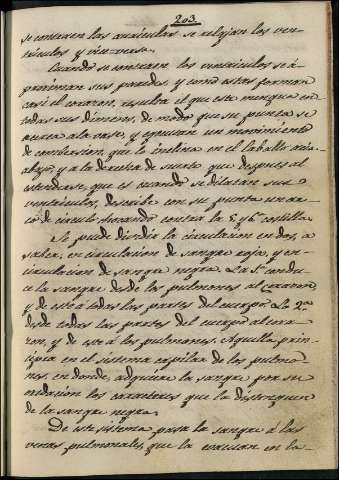 203
se contraen las auriculas se relajan los ven-
triculos y vice-versa.
Cuando se contraen los ventriculos se á-
proximan sus paredes y como estas forman
casi el corazon, resulta el que este mengue en
todas sus dimens, de modo que su punta se
acerca á la vase, y egecutan un movimiento
de combersion, que lo inclina en el caballo acia
abajo, y a la derecha de suerte que despues al
estenderse, que es cuando se dilatan sus
ventriculos, describe con su punta un ar-
co de circulo chocando contra la 5 y 6 costilla.
Se puede dividir la circulacion en dos, a
saber, en circulacion de sangre roja, y en
circulacion de sangre negra. La 1a condu-
ce la sangre desde los pulmones al corazon,
y de este á todas las partes del cuerpo. La 2a
desde todas las partes del cuerpo al cora-
zon, y de este á los pulmones. Aquella prin-
cipia en el sistema capilar de los pulmo-
nes, en donde, adquiere la sangre por su
oxidacion los caracteres que la distinguen
de la sangre negra.
De este sistema pasa la sangre á las
venas pulmonales que la vacian en la